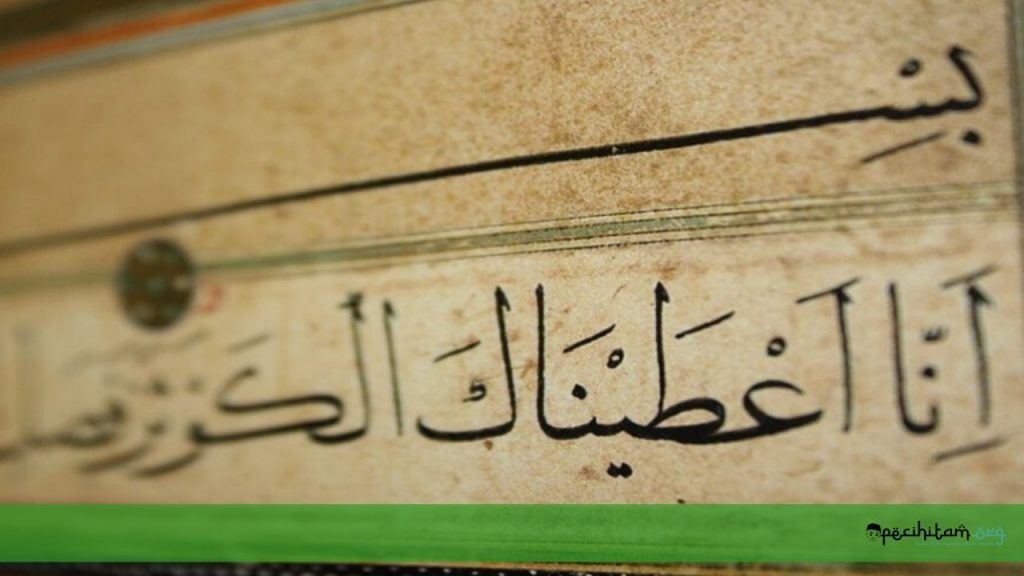 بِسْـ
اِنَّا اَعْطَيْنَاكَ الْكَوْثَرَ فصل
pecihitam.org